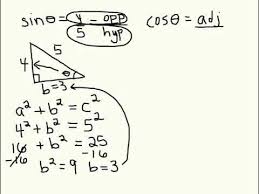 sinθ = 4/5 = opp/hyp
cosθ = adj
5
4
θ
b=3
a² + b² = c²
4² + b² = 5²
16 + b² = 25
-16 -16
b² = 9 b=3